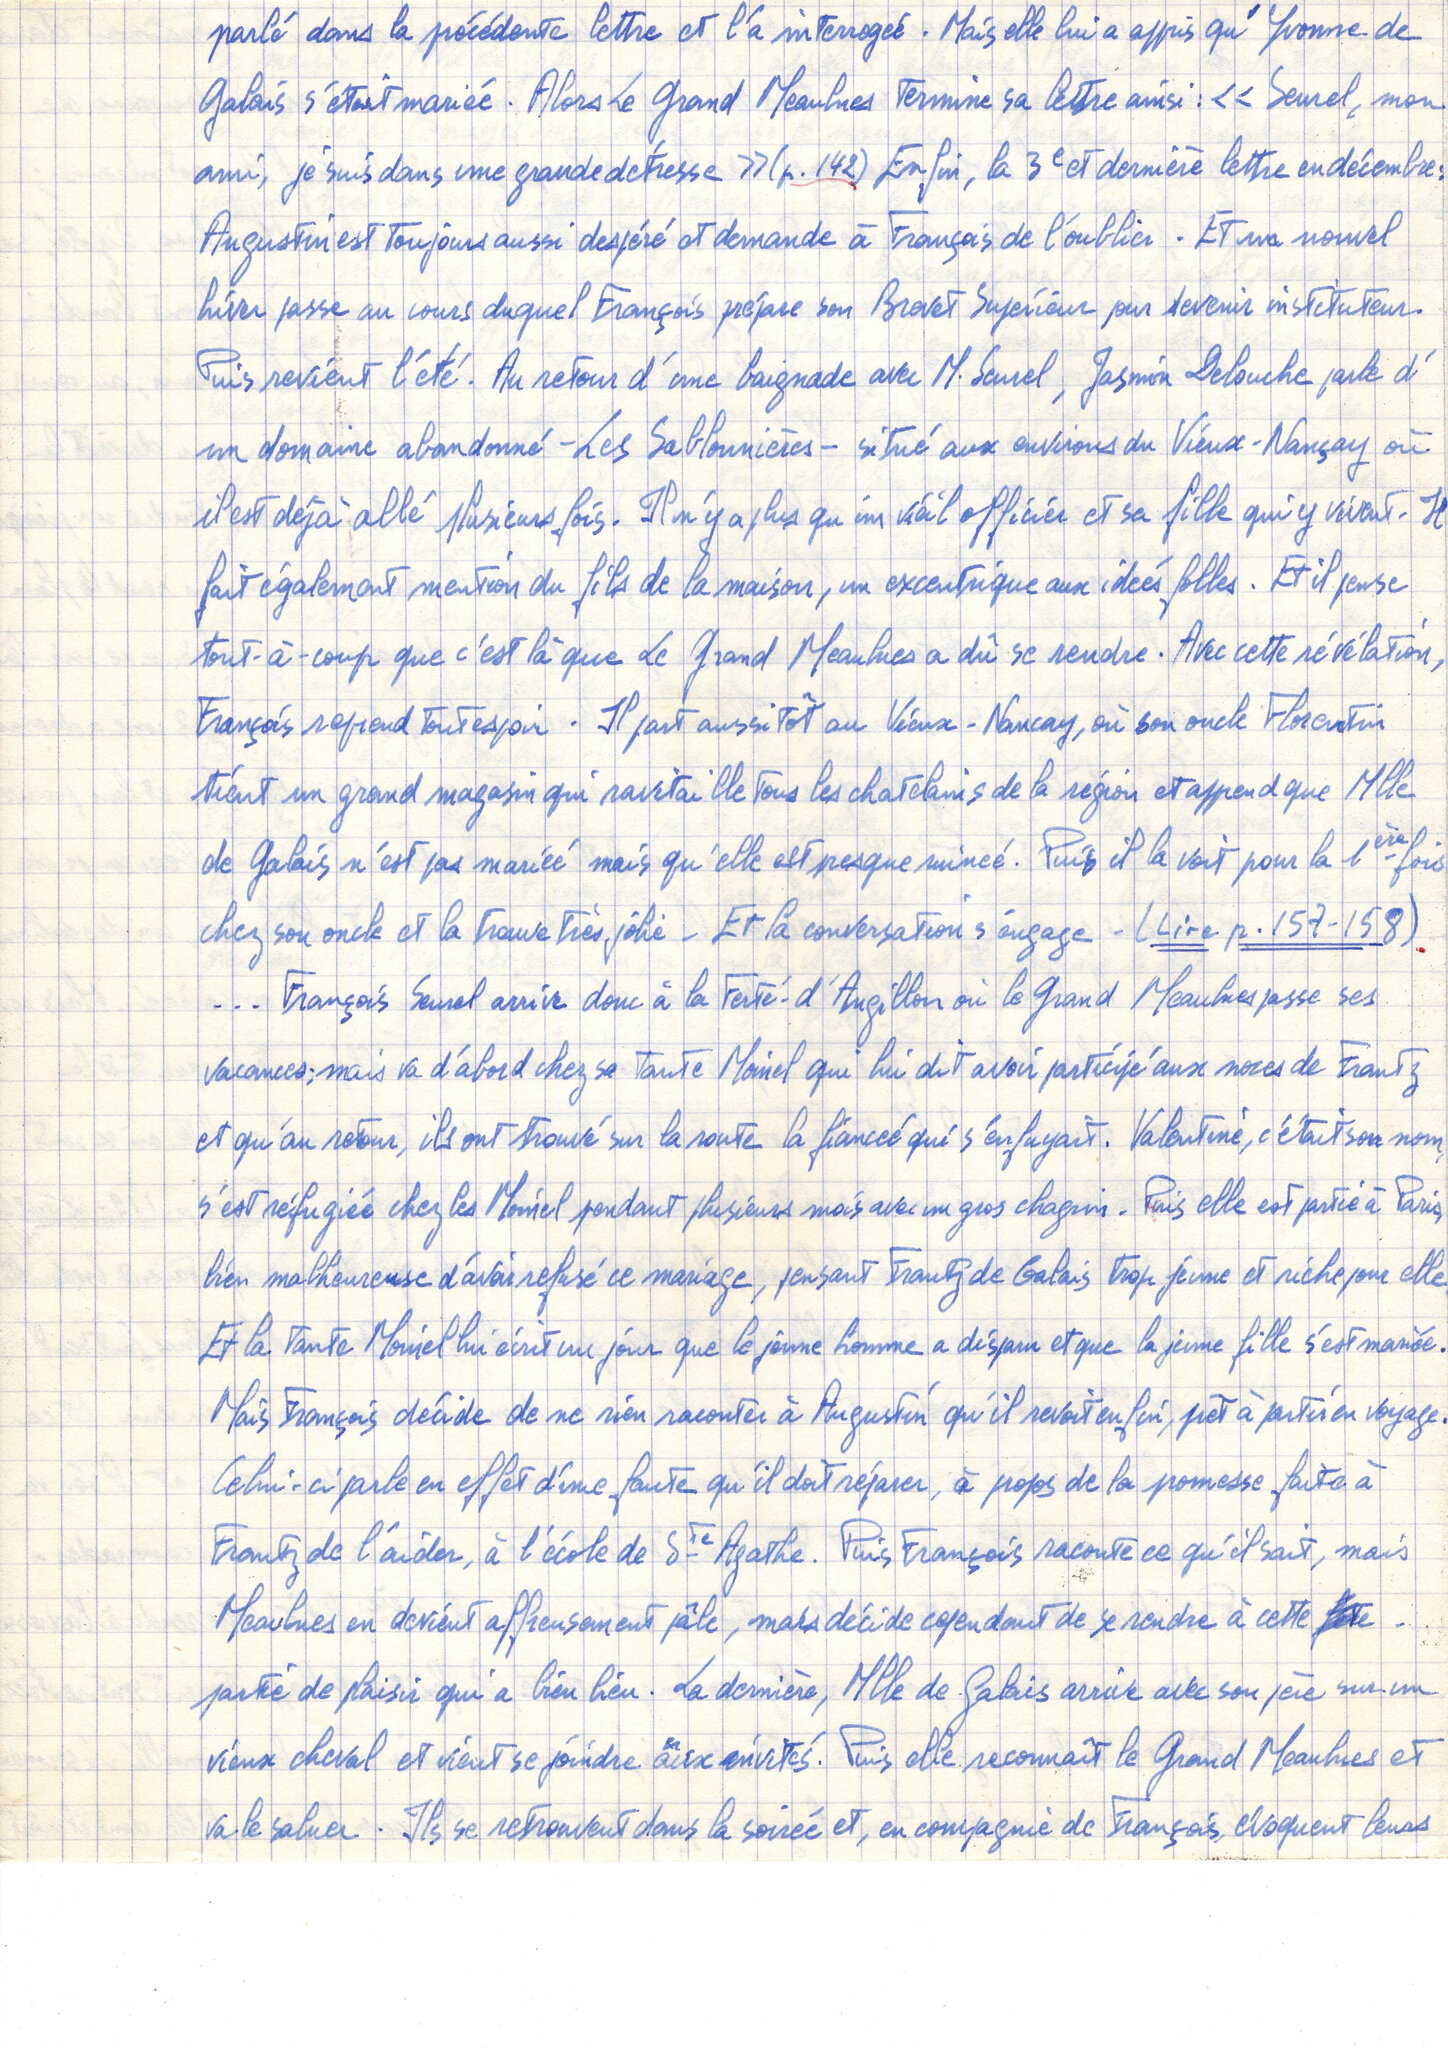 parlé dans la précédente lettre et l'a interrogée. Mais elle lui a appris qu'Yvonne de
Galais s'était mariée. Alors Le Grand Meaulnes termine sa lettre ainsi : << Seurel, mon
ami, je suis dans une grande détresse >> (p. 142) Enfin, la 3e et dernière lettre en décembre :
Augustin est toujours aussi despéré et demande à François de l'oublier. Et un nouvel
hiver passe au cours duquel François prépare son Brevet Supérieur pour devenir instituteur.
Puis revient l'été. Au retour d'une baignade avec M. Seurel, Jasmin Delouche parle d'
un domaine abandonné - Les Sablonnières - situé aux environs du Vieux-Nançay où
il est déjà allé plusieurs fois. Il n'y a plus qu'un vieil officier et sa fille qui y vivent. Il
fait également mention du fils de la maison, un excentrique aux idées folles. Et il pense
tout-à-coup que c'est là que Le Grand Meaulnes a dû se rendre. Avec cette révélation,
François reprend tout espoir. Il part aussitôt au Vieux-Nancay, où son oncle Florentin
tient un grand magasin qui ravitaille tous les chatelains de la région et apprend que Mlle
de Galais n'est pas mariée mais qu'elle est presque ruinée. Puis il la voit pour la 1ère fois
chez son oncle et la trouve très jolie - Et la conversation s'engage - (Lire p. 157-158)
... François Seurel arrive donc à la Ferté-d'Angillon où le Grand Meaulnes passe ses
vacances; mais va d'abord chez sa tante Moinel qui lui dit avoir participé aux noces de Frantz
et qu'au retour, ils ont trouvé sur la route la fiancée qui s'enfuyait. Valentine, c'était son nom,
s'est réfugiée chez les Moinel pendant plusieurs mois avec un gros chagrin. Puis elle est partie à Paris,
bien malheureuse d'avoir refusé ce mariage, pensant Frantz de Galais trop jeune et riche pour elle.
Et la tante Moinel lui écrit un jour que le jeune homme a disparu et que la jeune fille s'est mariée.
Mais François décide de ne rien raconter à Augustin qu'il revoit enfin, prêt à partir en voyage.
Celui-ci parle en effet d'une faute qu'il doit réparer, à propos de la promesse faite à
Frantz de l'aider, à l'école de Ste Agathe. Puis François raconte ce qu'il sait, mais
Meaulnes en devient affreusement pâle, mais décide cependant de se rendre à cette
partie de plaisir qui a bien lieu. La dernière, Mlle de Galais arrive avec son père sur un
vieux cheval et vient se joindre aux invités. Puis elle reconnaît le Grand Meaulnes et
va le saluer. Ils se retrouvent dans la soirée et, en compagnie de François, évoquent leurs